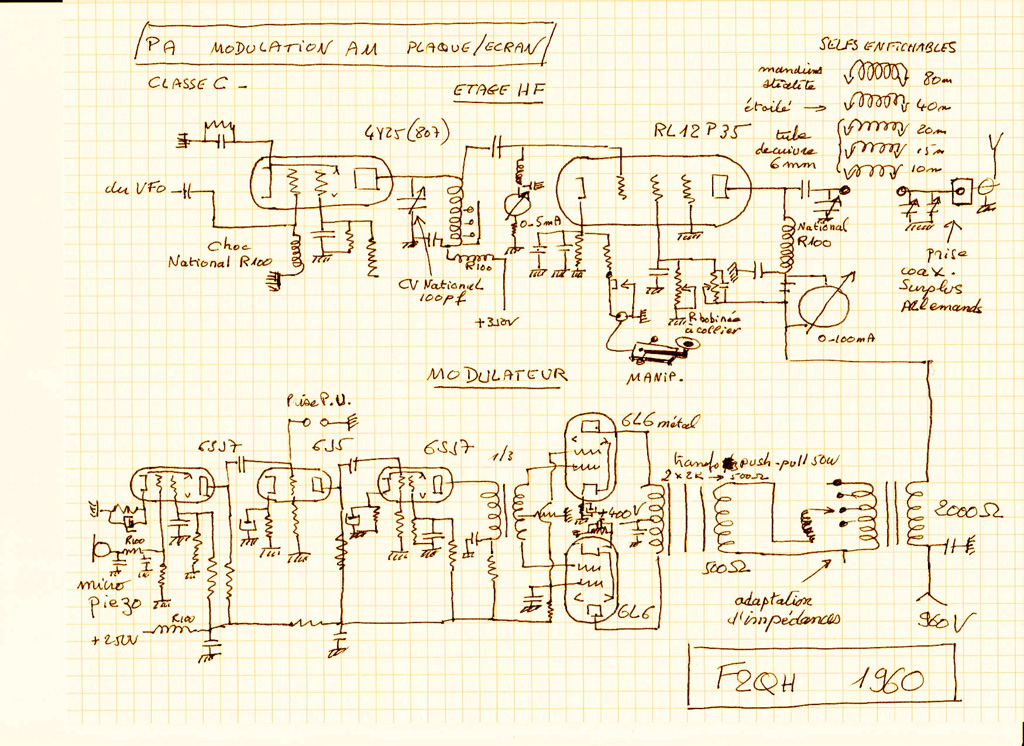 PA MODULATION AM PLAQUE/ECRAN
CLASSE C -
ETAGE HF
SELFS ENFICHABLES
mandrins
stéatite
étoilé →
tube
de cuivre
6 mm
80m
40m
20m
15m
10m
4Y25 (807)
RL12P35
du VFO
Choc
National R100
0-5mA
R100
CV National
100pf
+350V
National
R100
R bobinée
à collier
0-100mA
MANIP.
Prise
coax.
Surplus
Allemands
MODULATEUR
Prise P.U.
6SJ7
6J5
6SJ7
1/3
6L6 métal
transfo push-pull 50W
2 x 2K → 500Ω
+400V
2000Ω
R100
micro
piezo
500Ω
6L6
adaptation
d'impédances
960V
R100
+250V
F2QH 1960